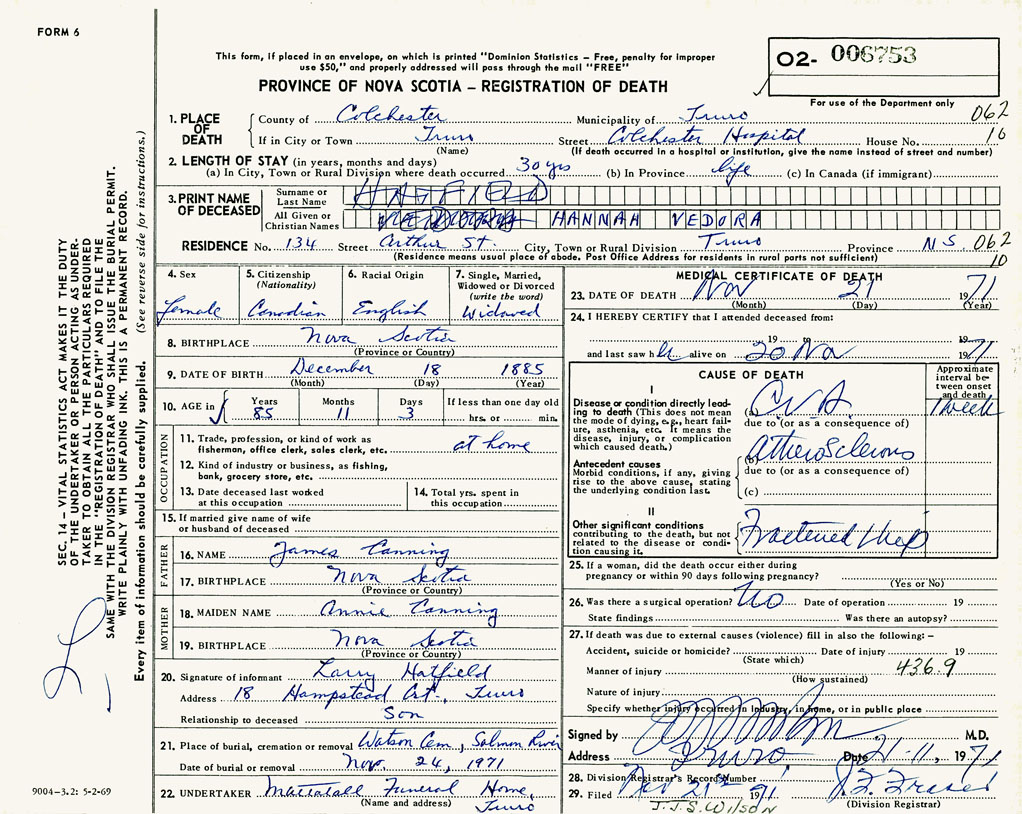 FORM 6
This form, if placed in an envelope, on which is printed "Dominion Statistics – Free, penalty for improper
use $50," and properly addressed will pass through the mail "FREE"
02- 006753
PROVINCE OF NOVA SCOTIA – REGISTRATION OF DEATH
For use of the Department only
1. PLACE OF DEATH
County of Colchester Municipality of Truro 062
If in City or Town Truro Street Colchester Hospital House No. 16
(Name) (If death occurred in a hospital or institution, give the name instead of street and number)
2. LENGTH OF STAY (in years, months and days)
(a) In City, Town or Rural Division where death occurred 30 yrs (b) In Province life (c) In Canada (if immigrant)
3. PRINT NAME OF DECEASED
Surname or Last Name HATFIELD
All Given or Christian Names HANNAH VEDORA
RESIDENCE No. 134 Street Arthur St. City, Town or Rural Division Truro Province N S. 062
(Residence means usual place of abode. Post Office Address for residents in rural parts not sufficient) 10
4. Sex
Female
5. Citizenship
(Nationality)
Canadian
6. Racial Origin
English
7. Single, Married,
Widowed or Divorced
(write the word)
Widowed
8. BIRTHPLACE Nova Scotia
(Province or Country)
9. DATE OF BIRTH December 18 1885
(Month) (Day) (Year)
10. AGE in
Years Months Days If less than one day old
85 11 3 hrs. or min.
OCCUPATION
11. Trade, profession, or kind of work as
fisherman, office clerk, sales clerk, etc. at home
12. Kind of industry or business, as fishing,
bank, grocery store, etc.
13. Date deceased last worked
at this occupation
14. Total yrs. spent in
this occupation
15. If married give name of wife
or husband of deceased
FATHER
16. NAME James Canning
17. BIRTHPLACE Nova Scotia
(Province or Country)
MOTHER
18. MAIDEN NAME Annie Canning
19. BIRTHPLACE Nova Scotia
(Province or Country)
20. Signature of informant Larry Hatfield
Address 18 Hampstead Crt., Truro
Relationship to deceased Son
21. Place of burial, cremation or removal Watson Cem., Salmon River
Date of burial or removal Nov. 24, 1971
22. UNDERTAKER Mattatall Funeral Home,
(Name and address) Truro
MEDICAL CERTIFICATE OF DEATH
23. DATE OF DEATH Nov 21 1971
(Month) (Day) (Year)
24. I HEREBY CERTIFY that I attended deceased from:
19 to 19
and last saw h alive on 20 Nov 1971
CAUSE OF DEATH
Approximate
interval be-
tween onset
and death
I
Disease or condition directly lead-
ing to death (This does not mean
the mode of dying, e.g., heart fail-
ure, asthenia, etc. It means the
disease, injury, or complication
which caused death.)
(a) CVA. 1 week
due to (or as a consequence of)
Antecedent causes
Morbid conditions, if any, giving
rise to the above cause, stating
the underlying condition last.
(b)
due to (or as a consequence of)
(c)
II
Other significant conditions
contributing to the death, but not
related to the disease or condi-
tion causing it.
Fractured Hip
25. If a woman, did the death occur either during
pregnancy or within 90 days following pregnancy?
(Yes or No)
26. Was there a surgical operation? No Date of operation 19
State findings Was there an autopsy?
27. If death was due to external causes (violence) fill in also the following: –
Accident, suicide or homicide? Date of injury 19
(State which)
Manner of injury 436.9
(How sustained)
Nature of injury
Specify whether injury occurred in industry, in home, or in public place
Signed by M.D.
Address Truro. Date 21-11, 1971
28. Division Registrar's Record Number
29. Filed Nov 21st 1971 J. F. Fraser
J.J.S. WILSON (Division Registrar)
SEC. 14 – VITAL STATISTICS ACT MAKES IT THE DUTY
OF THE UNDERTAKER OR PERSON ACTING AS UNDER-
TAKER TO OBTAIN ALL THE PARTICULARS REQUIRED
IN THE "REGISTRATION OF DEATH" AND TO FILE THE
SAME WITH THE DIVISION REGISTRAR WHO SHALL ISSUE THE BURIAL PERMIT.
WRITE PLAINLY WITH UNFADING INK. THIS IS A PERMANENT RECORD.
Every item of information should be carefully supplied. (See reverse side for instructions.)
9004-3.2: 5-2-69